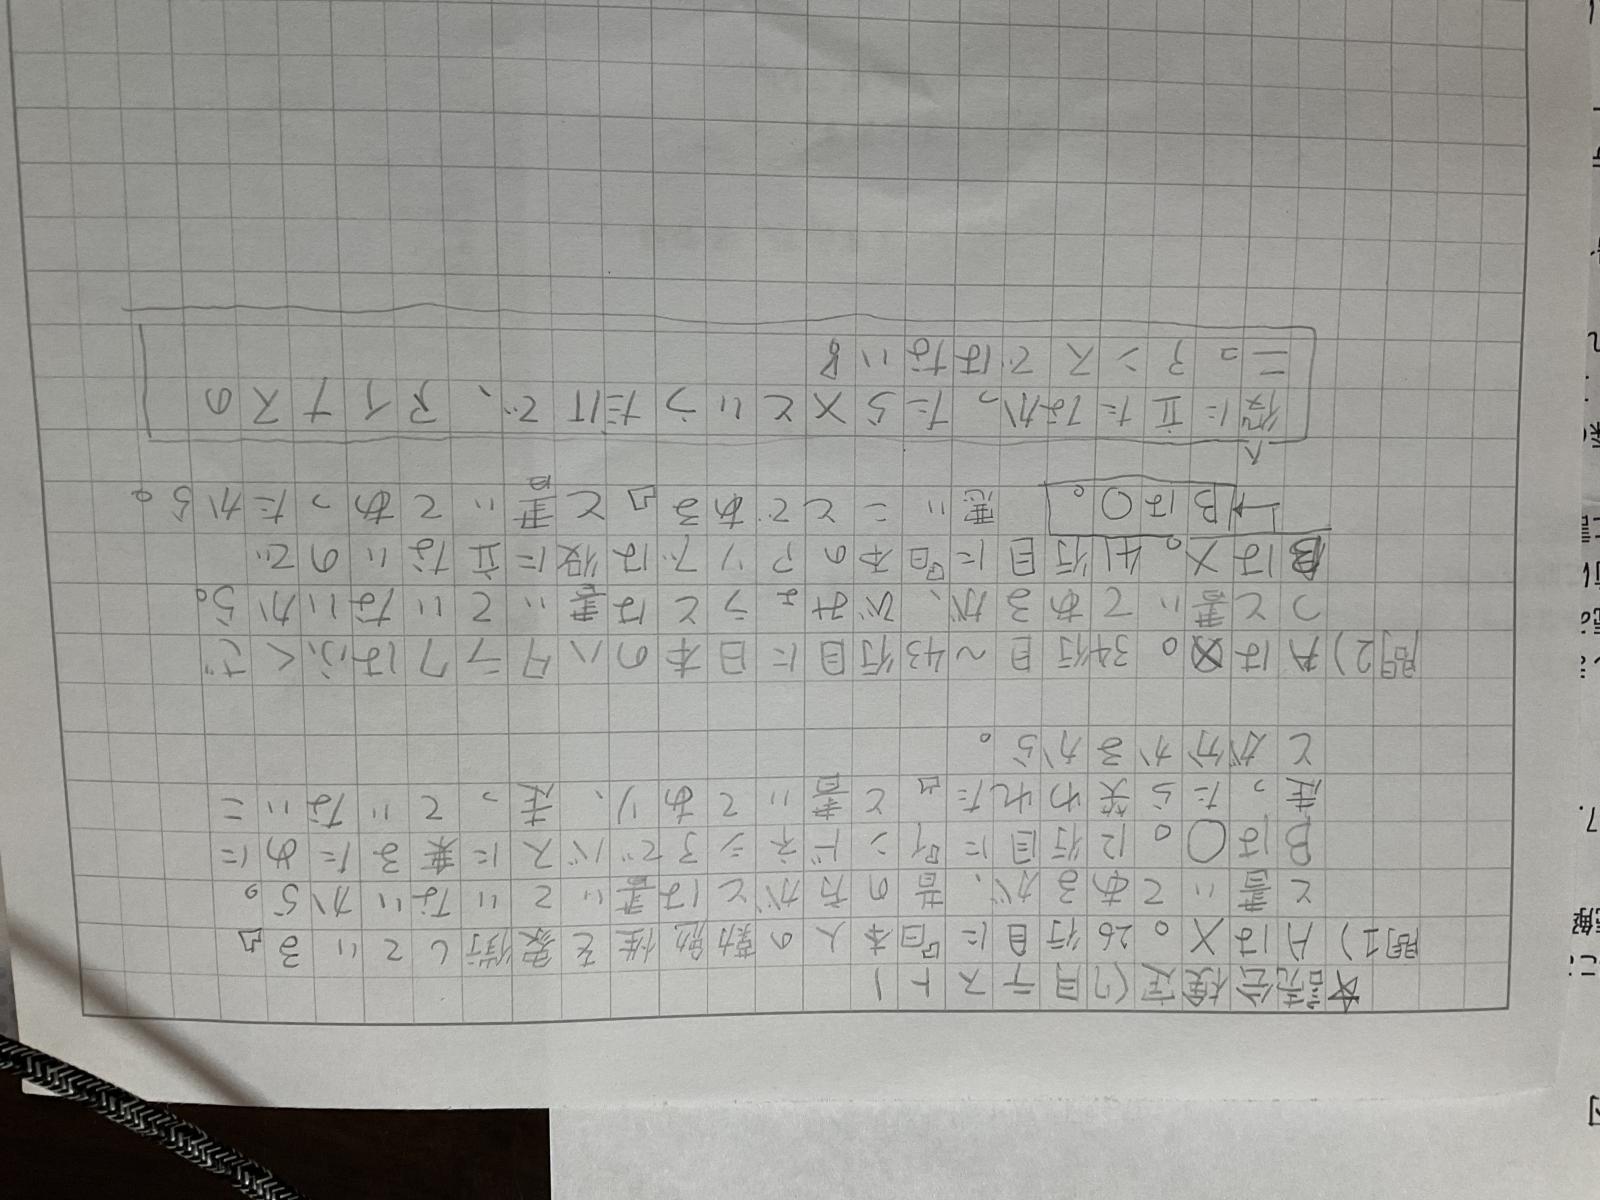 ★読会検定(7月テスト)
問1) Aは×。26行目に「日本人の勤勉性を象徴している」
と書いてあるが、昔の方がとは書いていないから。
Bは○。12行目に「インドネシアでバスに乗るために
走ったら笑われた」と書いてあり、走っていないこ
とが分かるから。
問2) Aは×。34行目~43行目に日本のハタラクはふくざ
つと書いてあるが、びみょうとは書いていないから。
Bは×。41行目に「日本のアソブは役に立ないので
→Bは○。 悪いことである」と書いてあったから。
役に立たなかったら×というだけで、マイナスの
ニュアンスではない